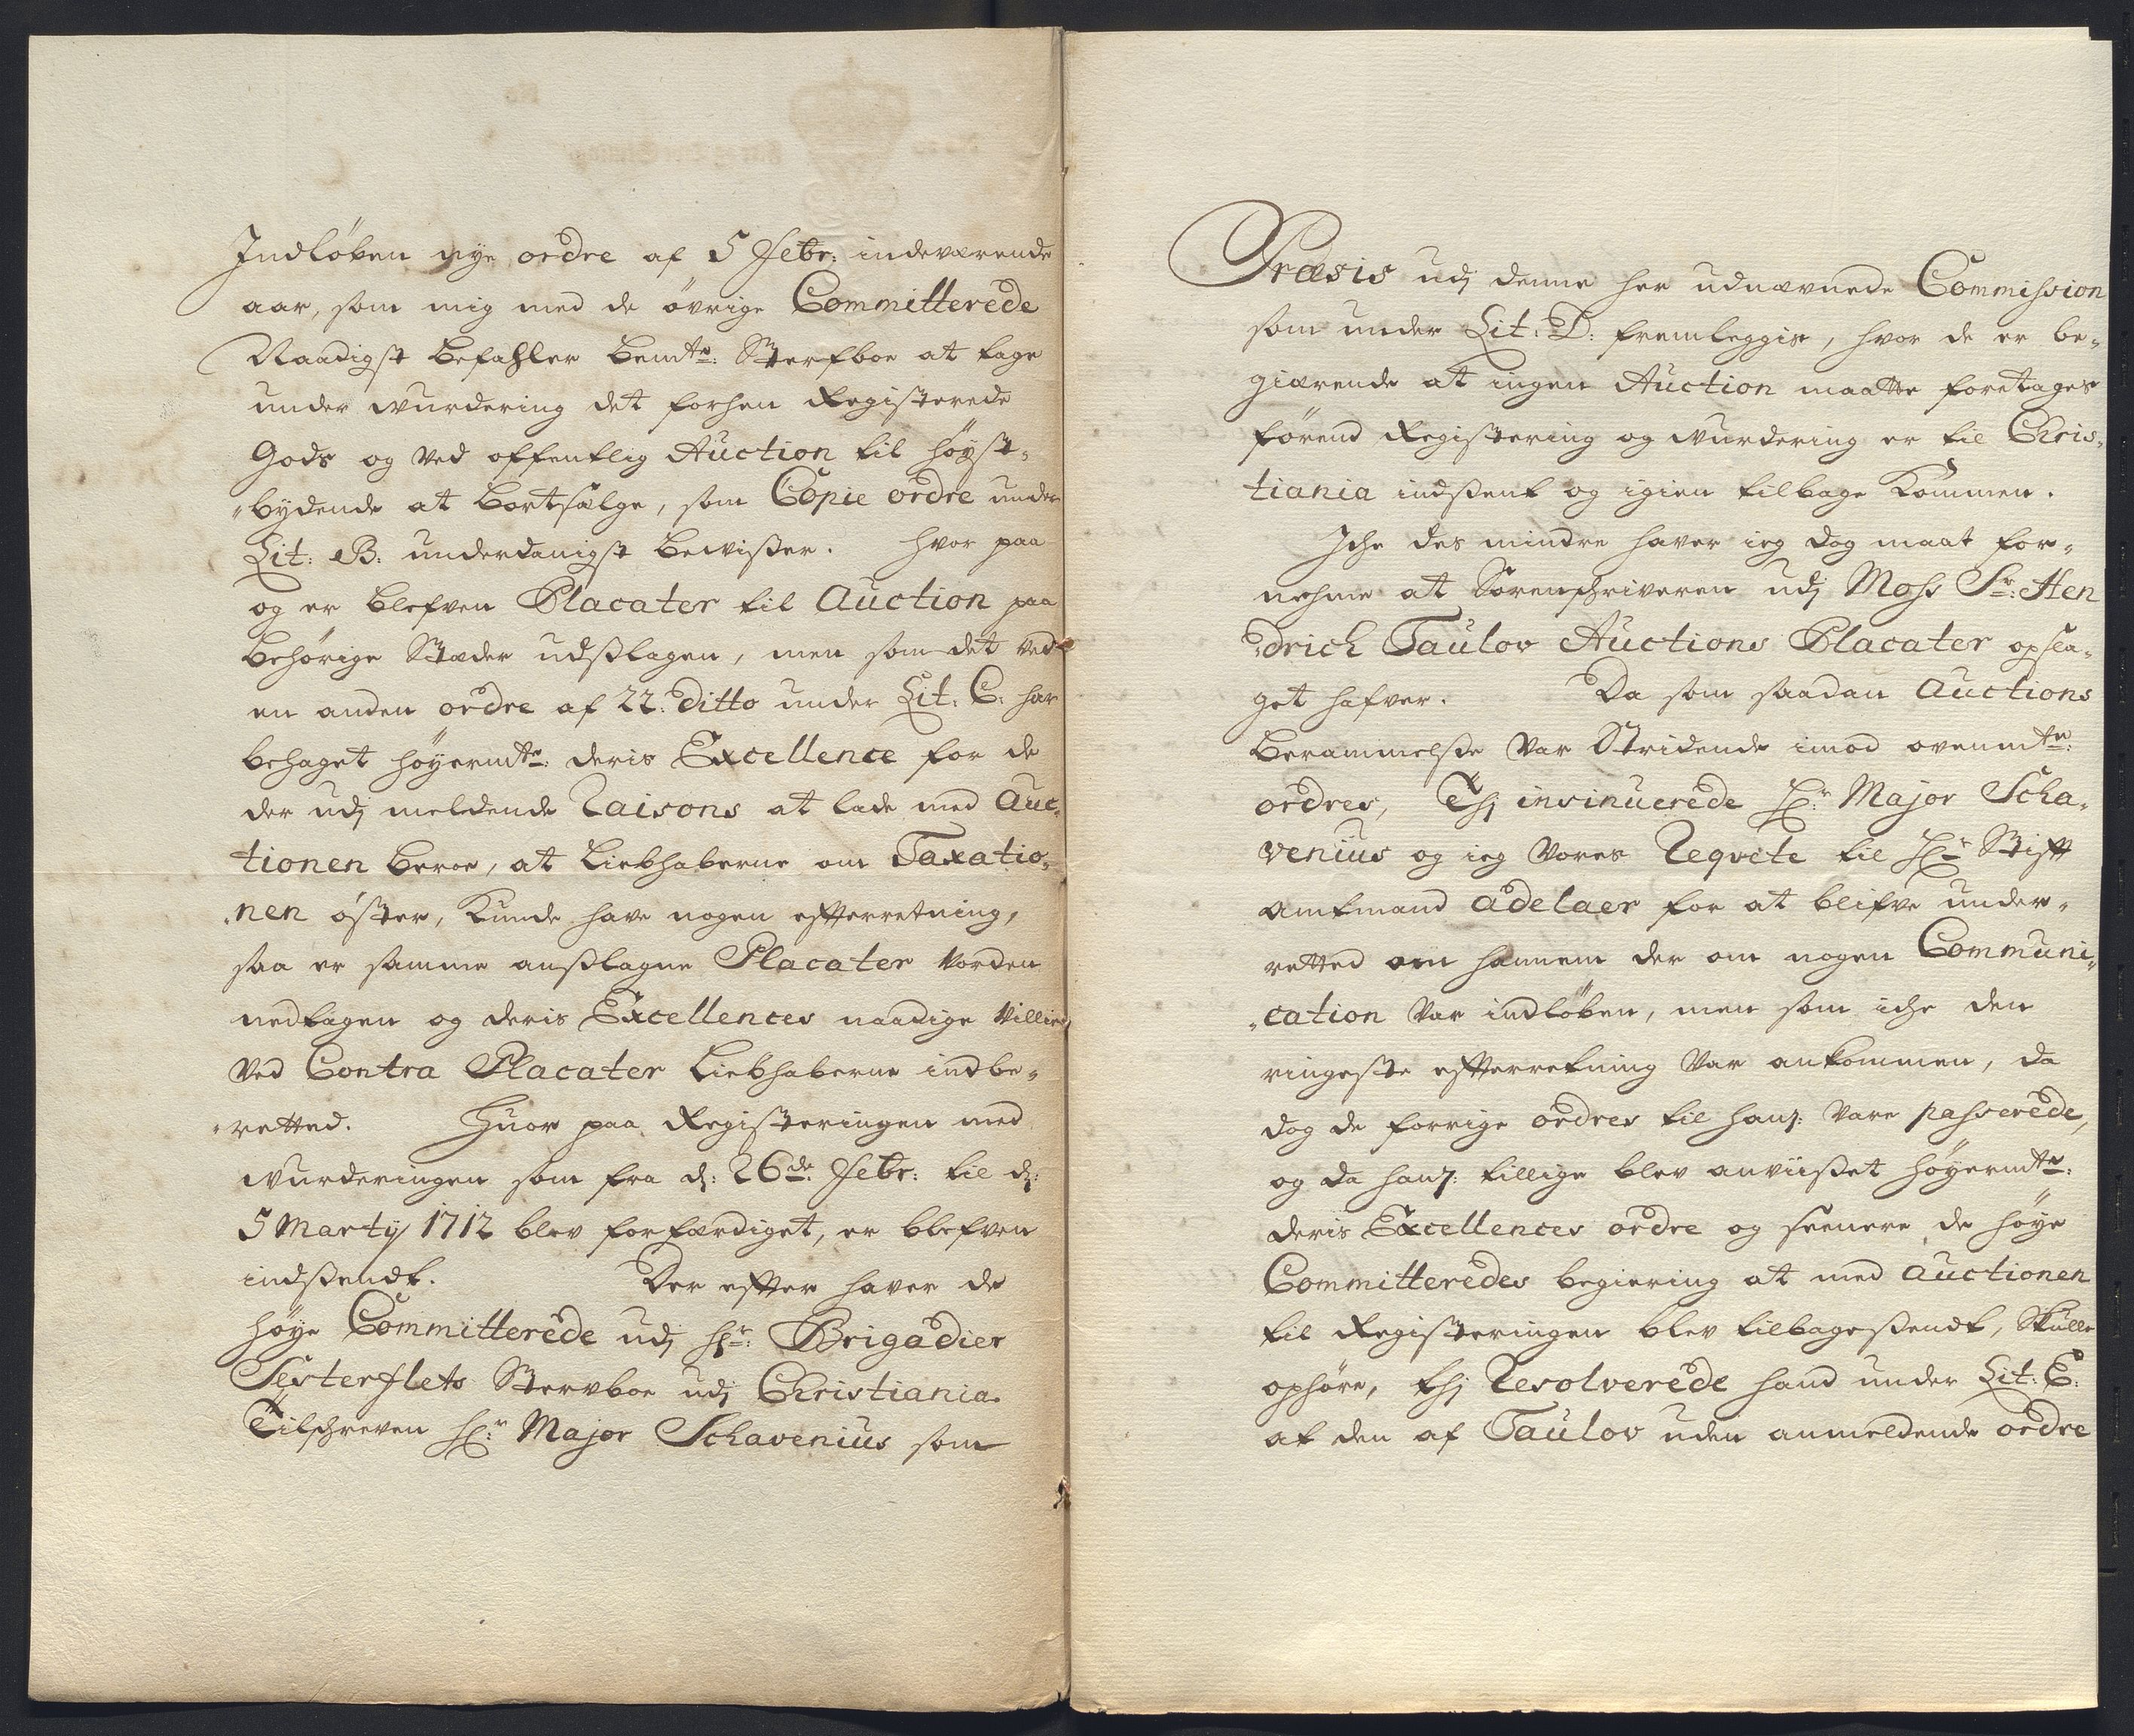 Indløben nye ordre af 5 Febr: indeværende
aar, som mig med de øvrige Committerede
Naadigst befahler bemte: Sterfboe at tage
under wurdering det forhen Registerede
Gods og ved offentlig Auction til høyst„
„bydende at bortsælge, som Copie ordre under
Lit: B: underdanigst bewisser. hvor paa
og er blefven Placater til Auction paa
behørige Stæder udsslagen, men som det ved
en anden ordre af 22: ditto under Lit: C: har
behaget høyermte: deris Excellence for de
der udj meldende Raisons at lade med Auc„
tionen beroe, at Liebhaberne om Taxatio„
„nen øster, Kunde have nogen effterretning,
saa er samme ansslagne Placater vorden
nedtagen og deris Excellences naadige Villie
ved Contra Placater Liebhaberne indbe„
„retted. Huor paa Registeringen med
wurderingen som fra d: 26de Febr: til d:
5 Martij 1712 blev forfærdiget, er blefven
indssendt. Der effter haver de
høye Committerede udj Hr: Brigadier
Sesterflets Stervboe udj Christiania
Tilschreven Hr: Major Schavenius som
Præsis udj denne her udnævnede Commission
som under Lit: D: fremleggis, hvor de er be„
giærende at ingen Auction maatte foretages
førend Registering og wurdering er til Chris„
tiania indssent og igien tilbage Kommen.
Iche des mindre haver ieg dog maat for„
nehme at Sorenschriveren udj Moss Sr: Hen
„drich Taulov Auctions Placater opsla„
get hafver. Da som saadan Auctions
berammelsse var Stridende imod ovenmte:
ordres, Thj insinuerede Hr: Major Scha„
venius og ieg vores Reqvete til Hr: Stifft
amtmand Adelaer for at blifve under„
retted om hannem der om nogen Communi„
„cation var indløben, men som iche den
ringeste effterretning var ankommen, da
dog de forrige ordres til hans: vare passerede,
og da hans: tillige blev anviisset høyermte:
deris Excellences ordre og seenere de høye
Committeredes begiering at med Auctionen
til Registeringen blev tilbagessendt, Skulle
ophøre, thj Resolverede hand under Lit: E:
at den af Taulov uden anmeldende ordre